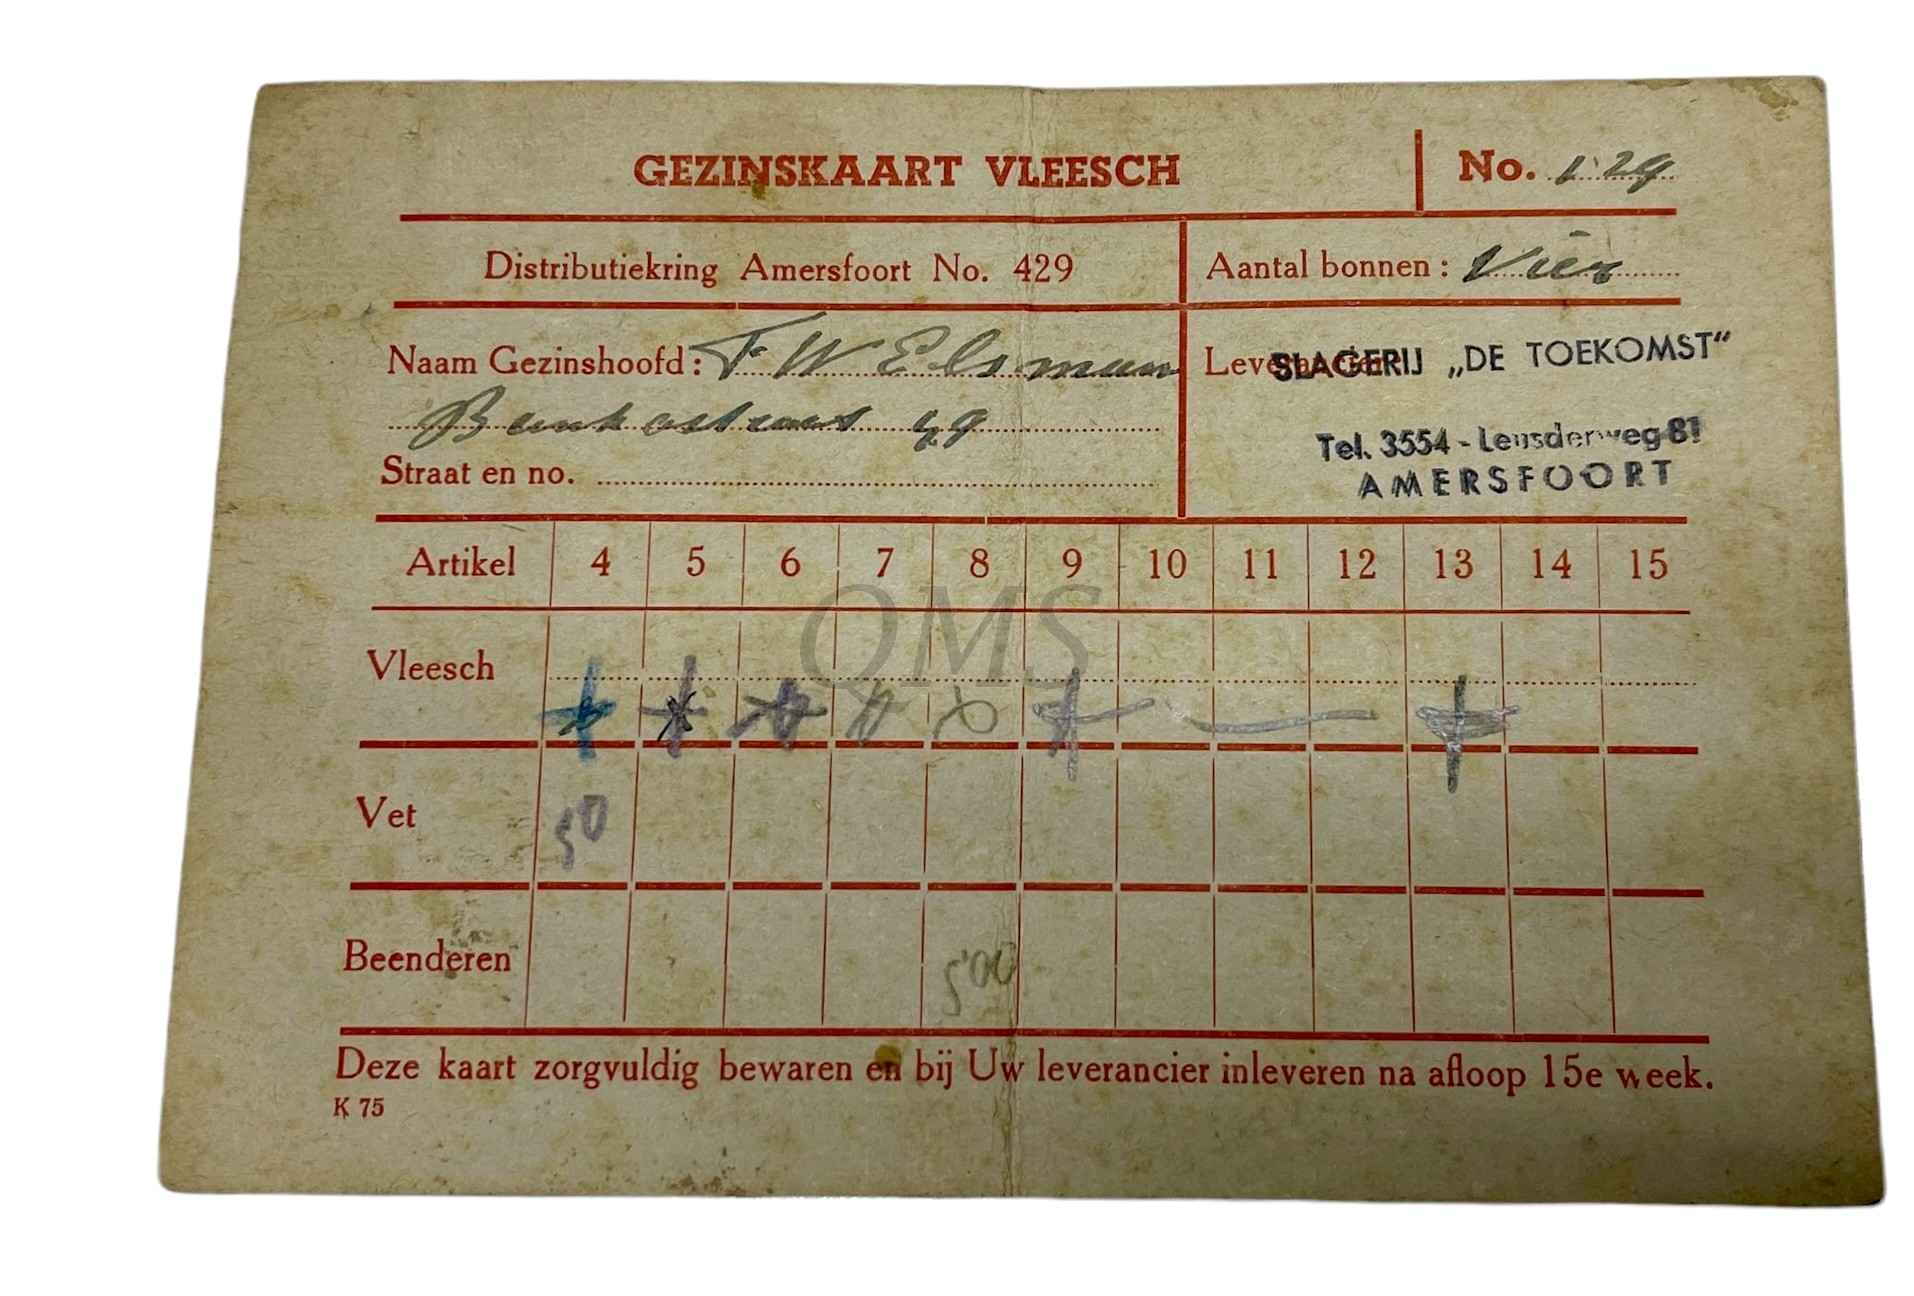 GEZINSKAART VLEESCH No. 129
Distributiekring Amersfoort No. 429 Aantal bonnen: Vier
Naam Gezinshoofd: F W Elsman Leverancier:
SLAGERIJ „DE TOEKOMST“
49
Tel. 3554 - Leusderweg 81
Straat en no.
AMERSFOORT
Artikel 4 5 6 7 8 9 10 11 12 13 14 15
QMS
Vleesch
Vet 50
Beenderen 500
Deze kaart zorgvuldig bewaren en bij Uw leverancier inleveren na afloop 15e week.
K 75